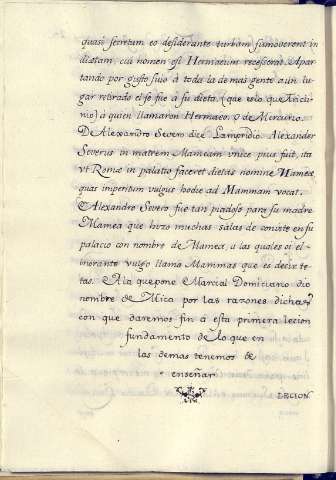 quasi secretum eo desiderante turbam sumoverent in
diætam, cui nomen est Hermæum recesserat. Apar
tando por gusto suio a toda la demas gente a un lu
gar retirado el se fue a su dieta (que es lo que Anchi
mio) a quien llamaron Hermaeo, ò de Mercurio.
De Alexandro Severo dize Lampridio. Alexander
Severus in matrem Mameam vnice pius fuit, ita
vt Romæ in palatio faceret diætas nomine Mameæ,
quas imperitum vulgus hodie ad Mammam vocat.
Alexandro Severo fue tan piadoso para su madre
Mamea que hizo muchas salas de convite en su
palacio con nombre de Mamea, a las quales oi el ig-
norante vulgo llama Mammas que es dezir te
tas. A la que pone Marcial Domiciano dio
nombre de Mica por las razones dichas,
con que daremos fin a esta primera lecion
fundamento de lo que en
las demas tenemos de
enseñar.
LECION